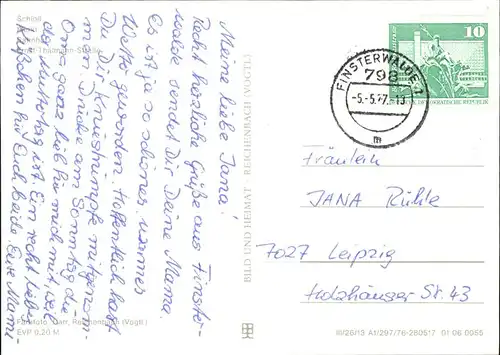 Schloß
Ernst-Thälmann-Straße
Meine liebe Jana!
Recht herzliche Grüße aus Finster-
walde sendet Dir Deine Mama.
Es ist ja so schönes warmes
Wetter geworden. Hoffentlich hast
Du Dir Kniestrümpfe mitgenom-
men. Drücke am Sonntag die
Oma ganz lieb für mich mit, weil
da Muttertag ist. Ein recht liebes
Küßchen für Dich beide. Eure Mami
Farbfoto: Darr, Reichenbach (Vogtl.)
EVP 0,20 M
BILD UND HEIMAT · REICHENBACH (VOGTL)
FINSTERWALDE 1
798
-5.-5.77.-13
m
10
DEMOKRATISCHE REPUBLIK
Fräulein
JANA Rühle
7027 Leipzig
Holzhäuser Str. 43
III/26/13 A1/297/76-280517 01 06 0055